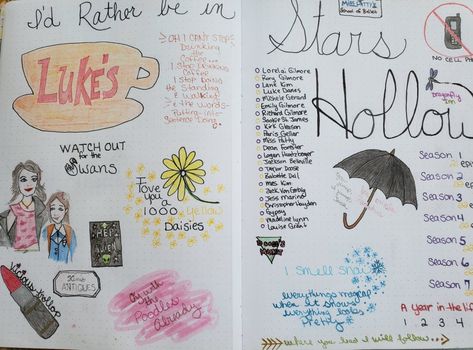 I'd Rather be in
LUKE'S
OH I CAN'T STOP
Drinking
the Coffee...
I stop Drinking
the Coffee
I stop Doing
the Standing
& walking
& the words-
Putting-into
Sentence Doing.
WATCH OUT
for the
Swans
I love
you a
1000 Yellow
Daisies
HEP
ALIEN
Vicious Trollop
ANTIQUES
with
the
Poodles
Already
Miss Patty's
School of Ballet
Stars
Hollow
NO CELL
Dragonfly
Inn
Lorelai Gilmore
Rory Gilmore
Lane Kim
Luke Danes
Michele Gerard
Emily Gilmore
Richard Gilmore
Sookie St. James
Kirk Gleason
Paris Geller
Miss Patty
Dean Forester
Logan Huntzberger
Jackson Belleville
Taylor Doose
Babette Dell
Mrs Kim
Zack Van Gerbig
Jess Mariano
Christopher Hayden
Gypsy
Madeline Lynn
Louise Grant
Season 1
Season 2
Season 3
Season 4
Season 5
Season 6
Season 7
Doose's
Market
I smell snow
everything's magical
when it snows
everything looks
Pretty
A year in the life
1 2 3 4
where you lead I will follow...